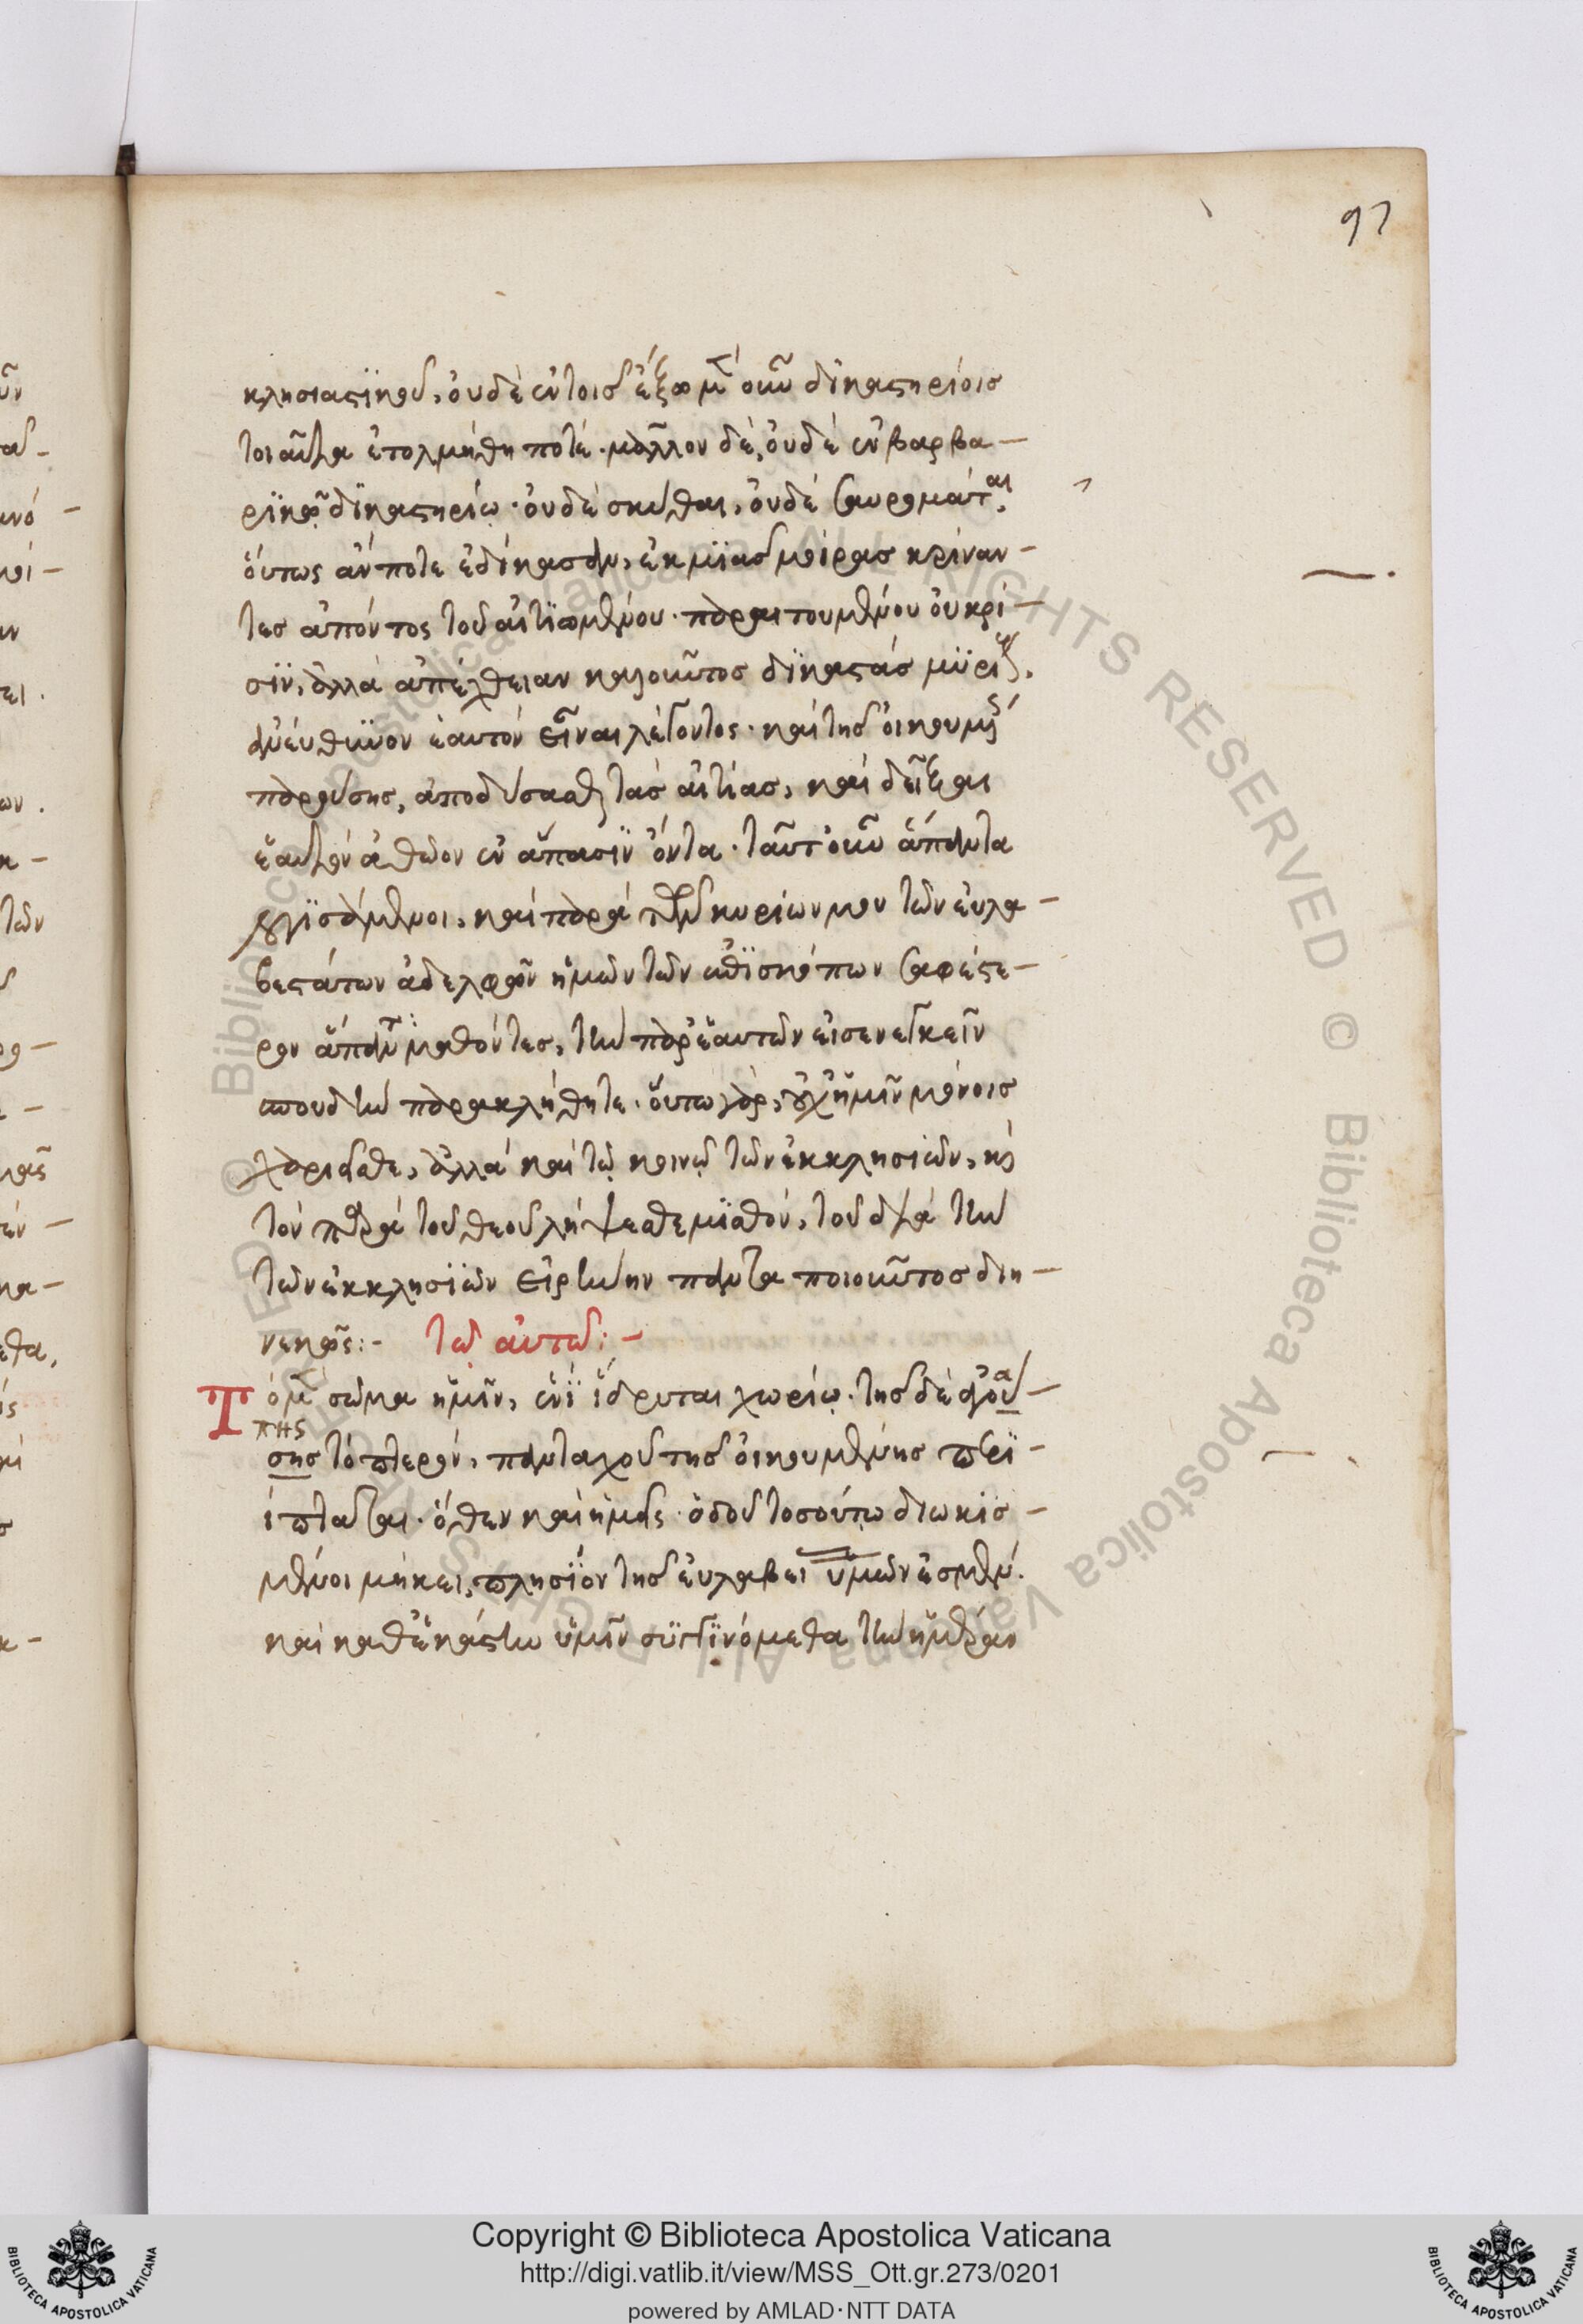 97
κλησιαστϊκοῦ, ουδὲ ἐν τοισ ἔξω μὲν οὖν δϊκαστηρίοισ
τοιαῦτα ἐτολμήθη ποτέ. μᾶλλον δὲ, ουδὲ ἐν βαρβα-
ρϊκῶ δϊκαστηρίω. ουδὲ σκύθαι, ουδὲ σαυρομάται,
ὅυτως ἄν ποτε ἐδίκασαν, ἐκ μϊασ μοίρασ κρίναν-
τεσ ἀπόντος τοῦ αἰτϊωμένου. παραιτουμένου ου κρί-
σϊν, ἀλλὰ ἀπέχθειαν καλοῦντοσ δϊκαστὰσ μϋρίους.
ἀνεύθϋνον ἑαυτὸν εἶναι λέγοντος. καὶ τῆσ οἰκουμένης
παρούσησ, ἀποδύσασθαι τὰσ αἰτίασ, καὶ δεῖξαι
ἑαυτὸν ἀθῶον ἐν ἅπασϊν ὄντα. ταῦτ' οὖν ἅπαντα
λογϊσάμενοι, καὶ παρὰ τῶν κυρίων μου τῶν ἐυλα-
βεστάτων ἀδελφῶν ἡμῶν τῶν ἐπϊσκόπων σαφέστε-
ρον ἅπαντα μαθόντεσ, τὴν παρ' ἑαυτῶν εἰσενεγκεῖν
σπουδὴν παρακλήθητε. ὅυτω γὰρ, οὐχ ἡμῖν μόνοισ
χαριεῖσθε, ἀλλὰ καὶ τῶ κοινῶ τῶν ἐκκλησιῶν, καὶ
τὸν παρὰ τοῦ θεοῦ λήψεσθε μϊσθόν, τοῦ διὰ τὴν
τῶν ἐκκλησϊῶν εἰρήνην πάντα ποιοῦντοσ διη-
νεκῶς:-
τῶ αὐτῶ:-
Τὸ μὲν σῶμα ἡμῖν, ἑνῒ ἵδρυται χωρίω. τῆσ δὲ ἀγά
πης
σης τὸ πτερὸν, πανταχοῦ τῆσ οἰκουμένησ περϊ-
ίπταται. ὅθεν καὶ ἡμεῖς ὁδοῦ τοσούτω διωκισ-
μένοι μήκει, πλησϊόν τῆσ ἐυλαβεί ὑμῶν ἐσμέν.
καὶ καθ' ἑκάστην ὑμῖν συγγϊνόμεθα τὴν ἡμέραν
Copyright © Biblioteca Apostolica Vaticana
http://digi.vatlib.it/view/MSS_Ott.gr.273/0201
powered by AMLAD·NTT DATA